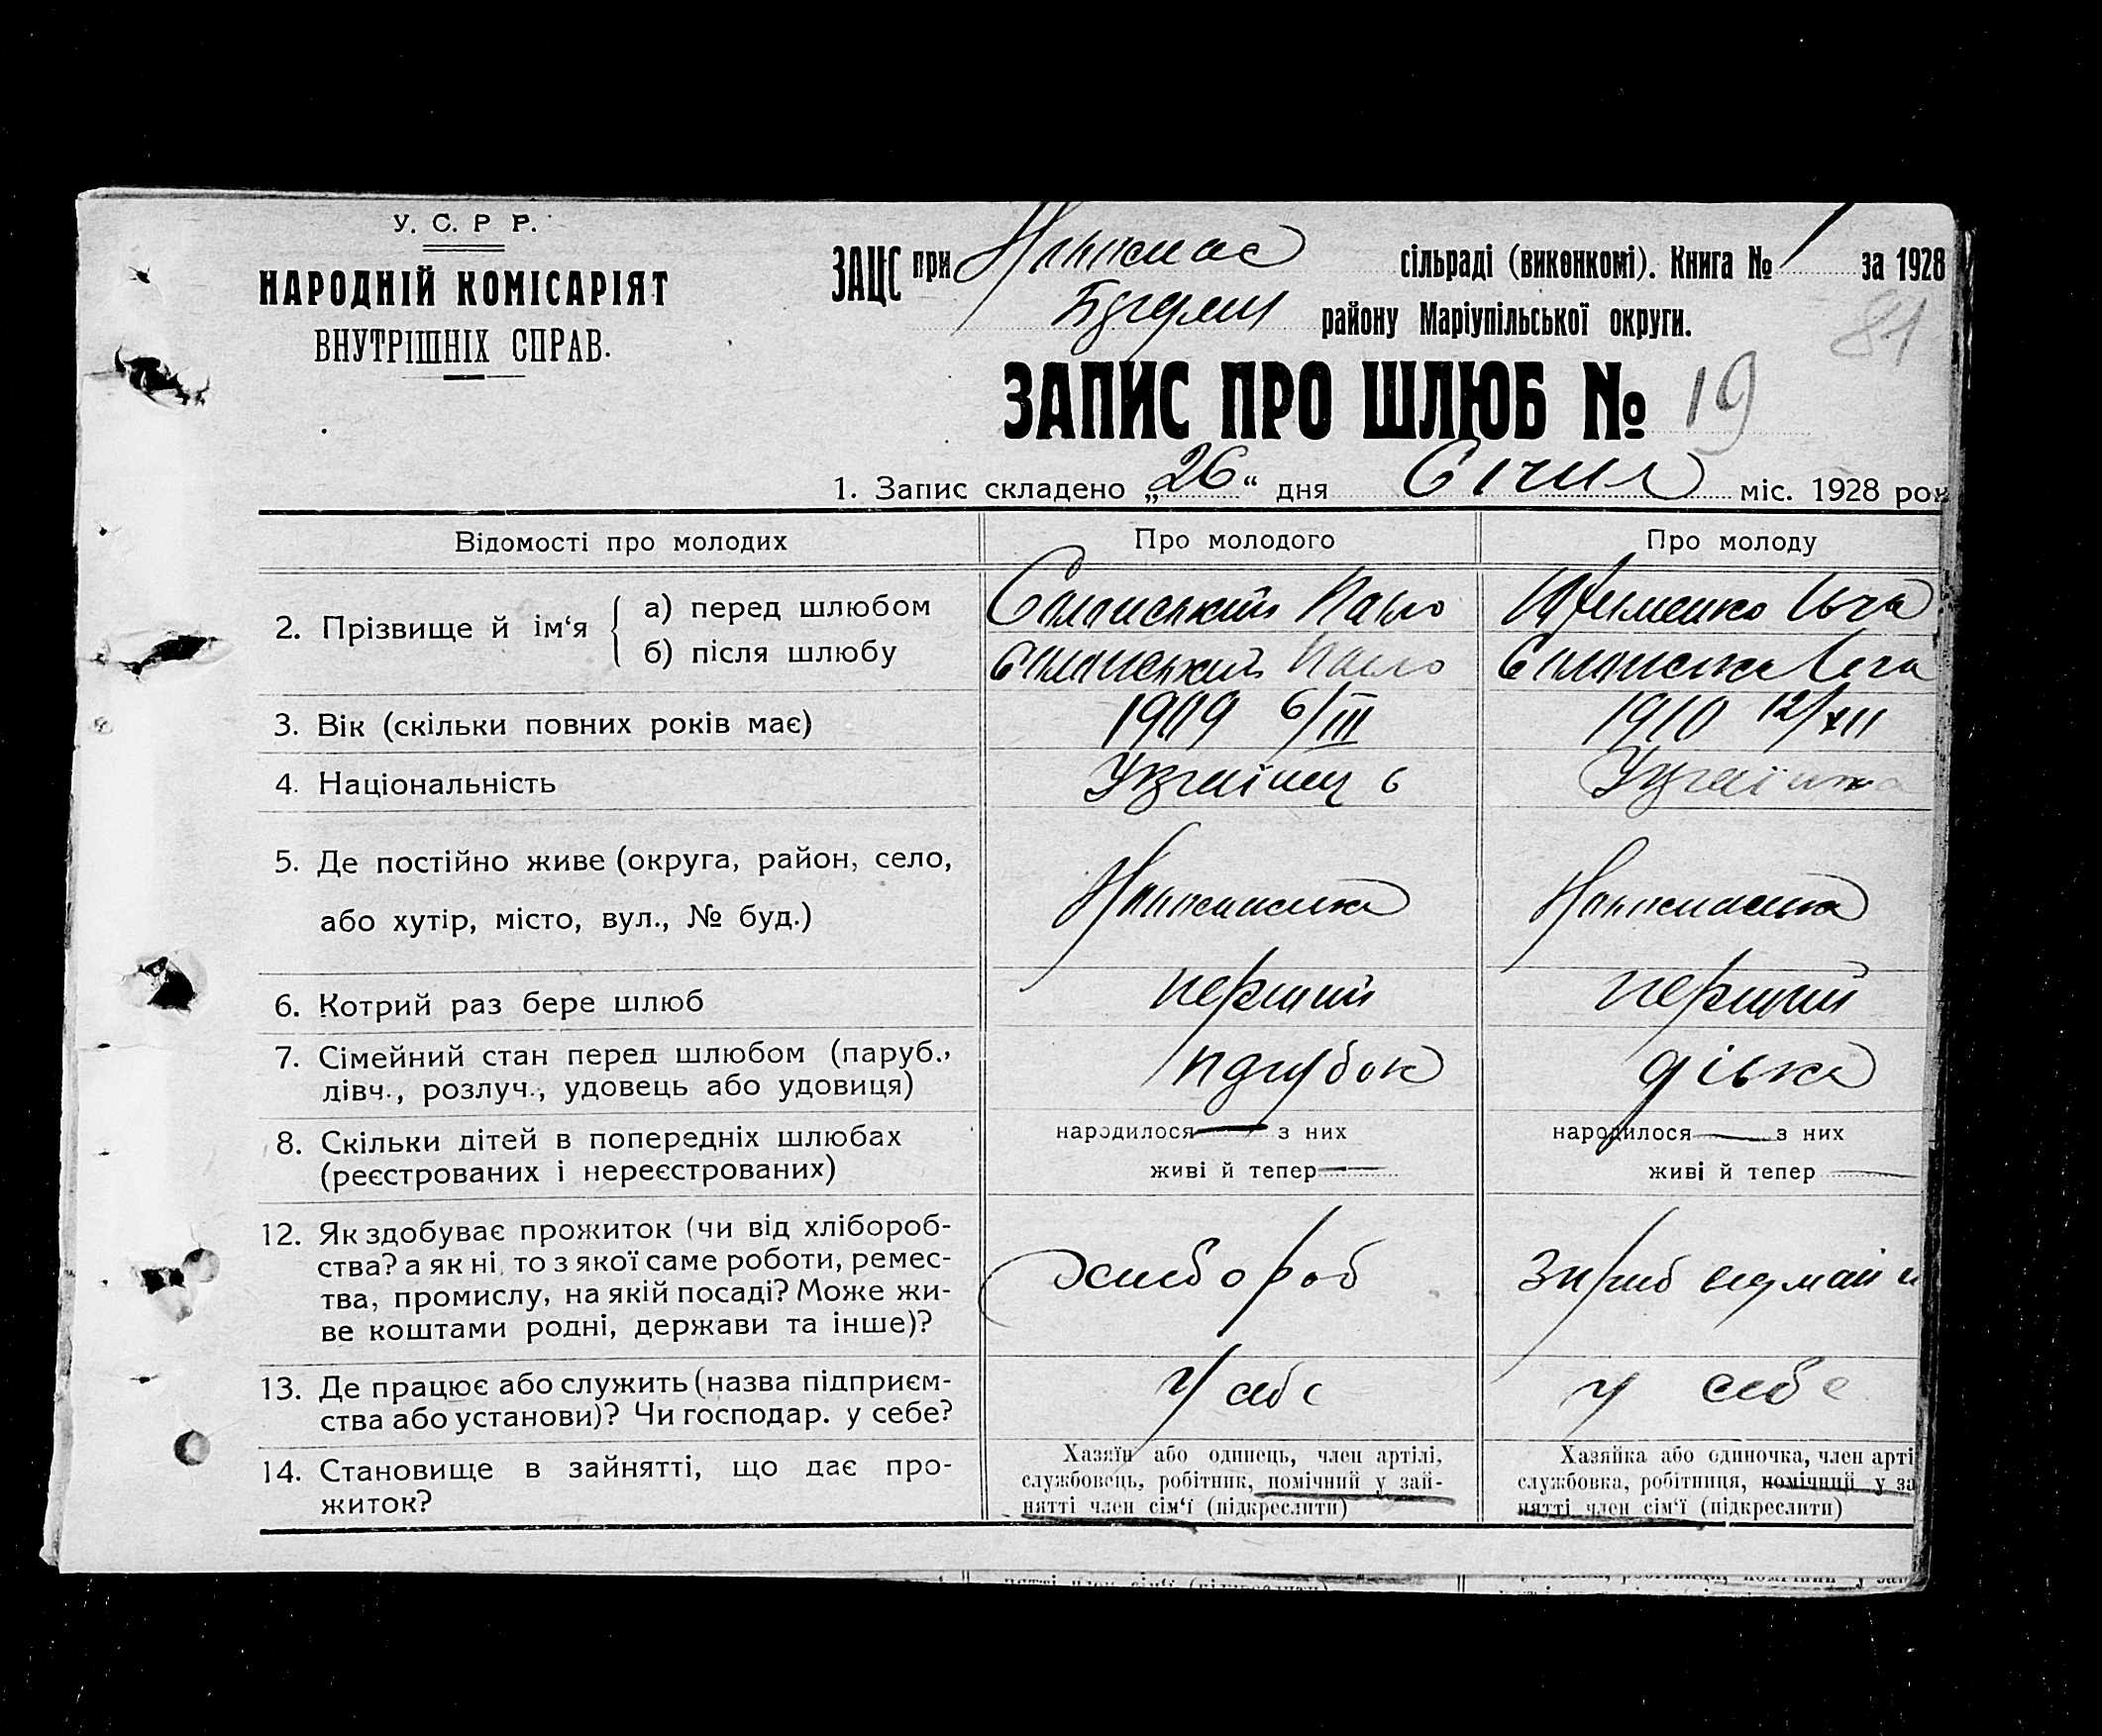 У. С. Р Р.
НАРОДНІЙ КОМІСАРІЯТ
ВНУТРІШНІХ СПРАВ.
ЗАЦС при сільраді (виконкомі). Книга № 1 за 1928
району Маріупільської округи.
81
ЗАПИС ПРО ШЛЮБ № 19
1. Запис складено „26“ дня Січня міс. 1928 рок
Відомості про молодих Про молодого Про молоду
2. Прізвище й ім‘я
а) перед шлюбом Павло
б) після шлюбу Павло
3. Вік (скільки повних років має) 1909 6/III 1910 12/XII
4. Національність Українець Українка
5. Де постійно живе (округа, район, село,
або хутір, місто, вул., № буд.)
6. Котрий раз бере шлюб перший перший
7. Сімейний стан перед шлюбом (паруб.,
дівч., розлуч., удовець або удовиця) парубок дівка
8. Скільки дітей в попередніх шлюбах народилося — з них народилося — з них
(реєстрованих і нереєстрованих) живі й тепер — живі й тепер —
12. Як здобуває прожиток (чи від хлібороб-
ства? а як ні, то з якої саме роботи, ремес-
тва, промислу, на якій посаді? Може жи-
ве коштами родні, держави та інше)? хлебороб
13. Де працює або служить (назва підприєм-
ства або установи)? Чи господар. у себе? У себе у себе
14. Становище в зайнятті, що дає про-
житок?
Хазяїн або одинець, член артілі,
службовець, робітник, помічний у зай-
нятті член сім‘ї (підкреслити)
Хазяйка або одиночка, член арті
службовка, робітниця, помічний у за
нятті член сім‘ї (підкреслити)